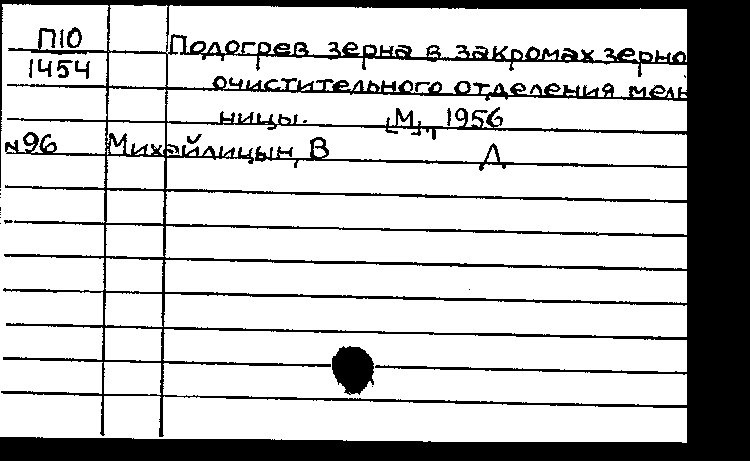 П10
1454
Подогрев зерна в закромах зерно
очистительного отделения мель
ницы. [М.], 1956
№96 Михайлицын, В Д